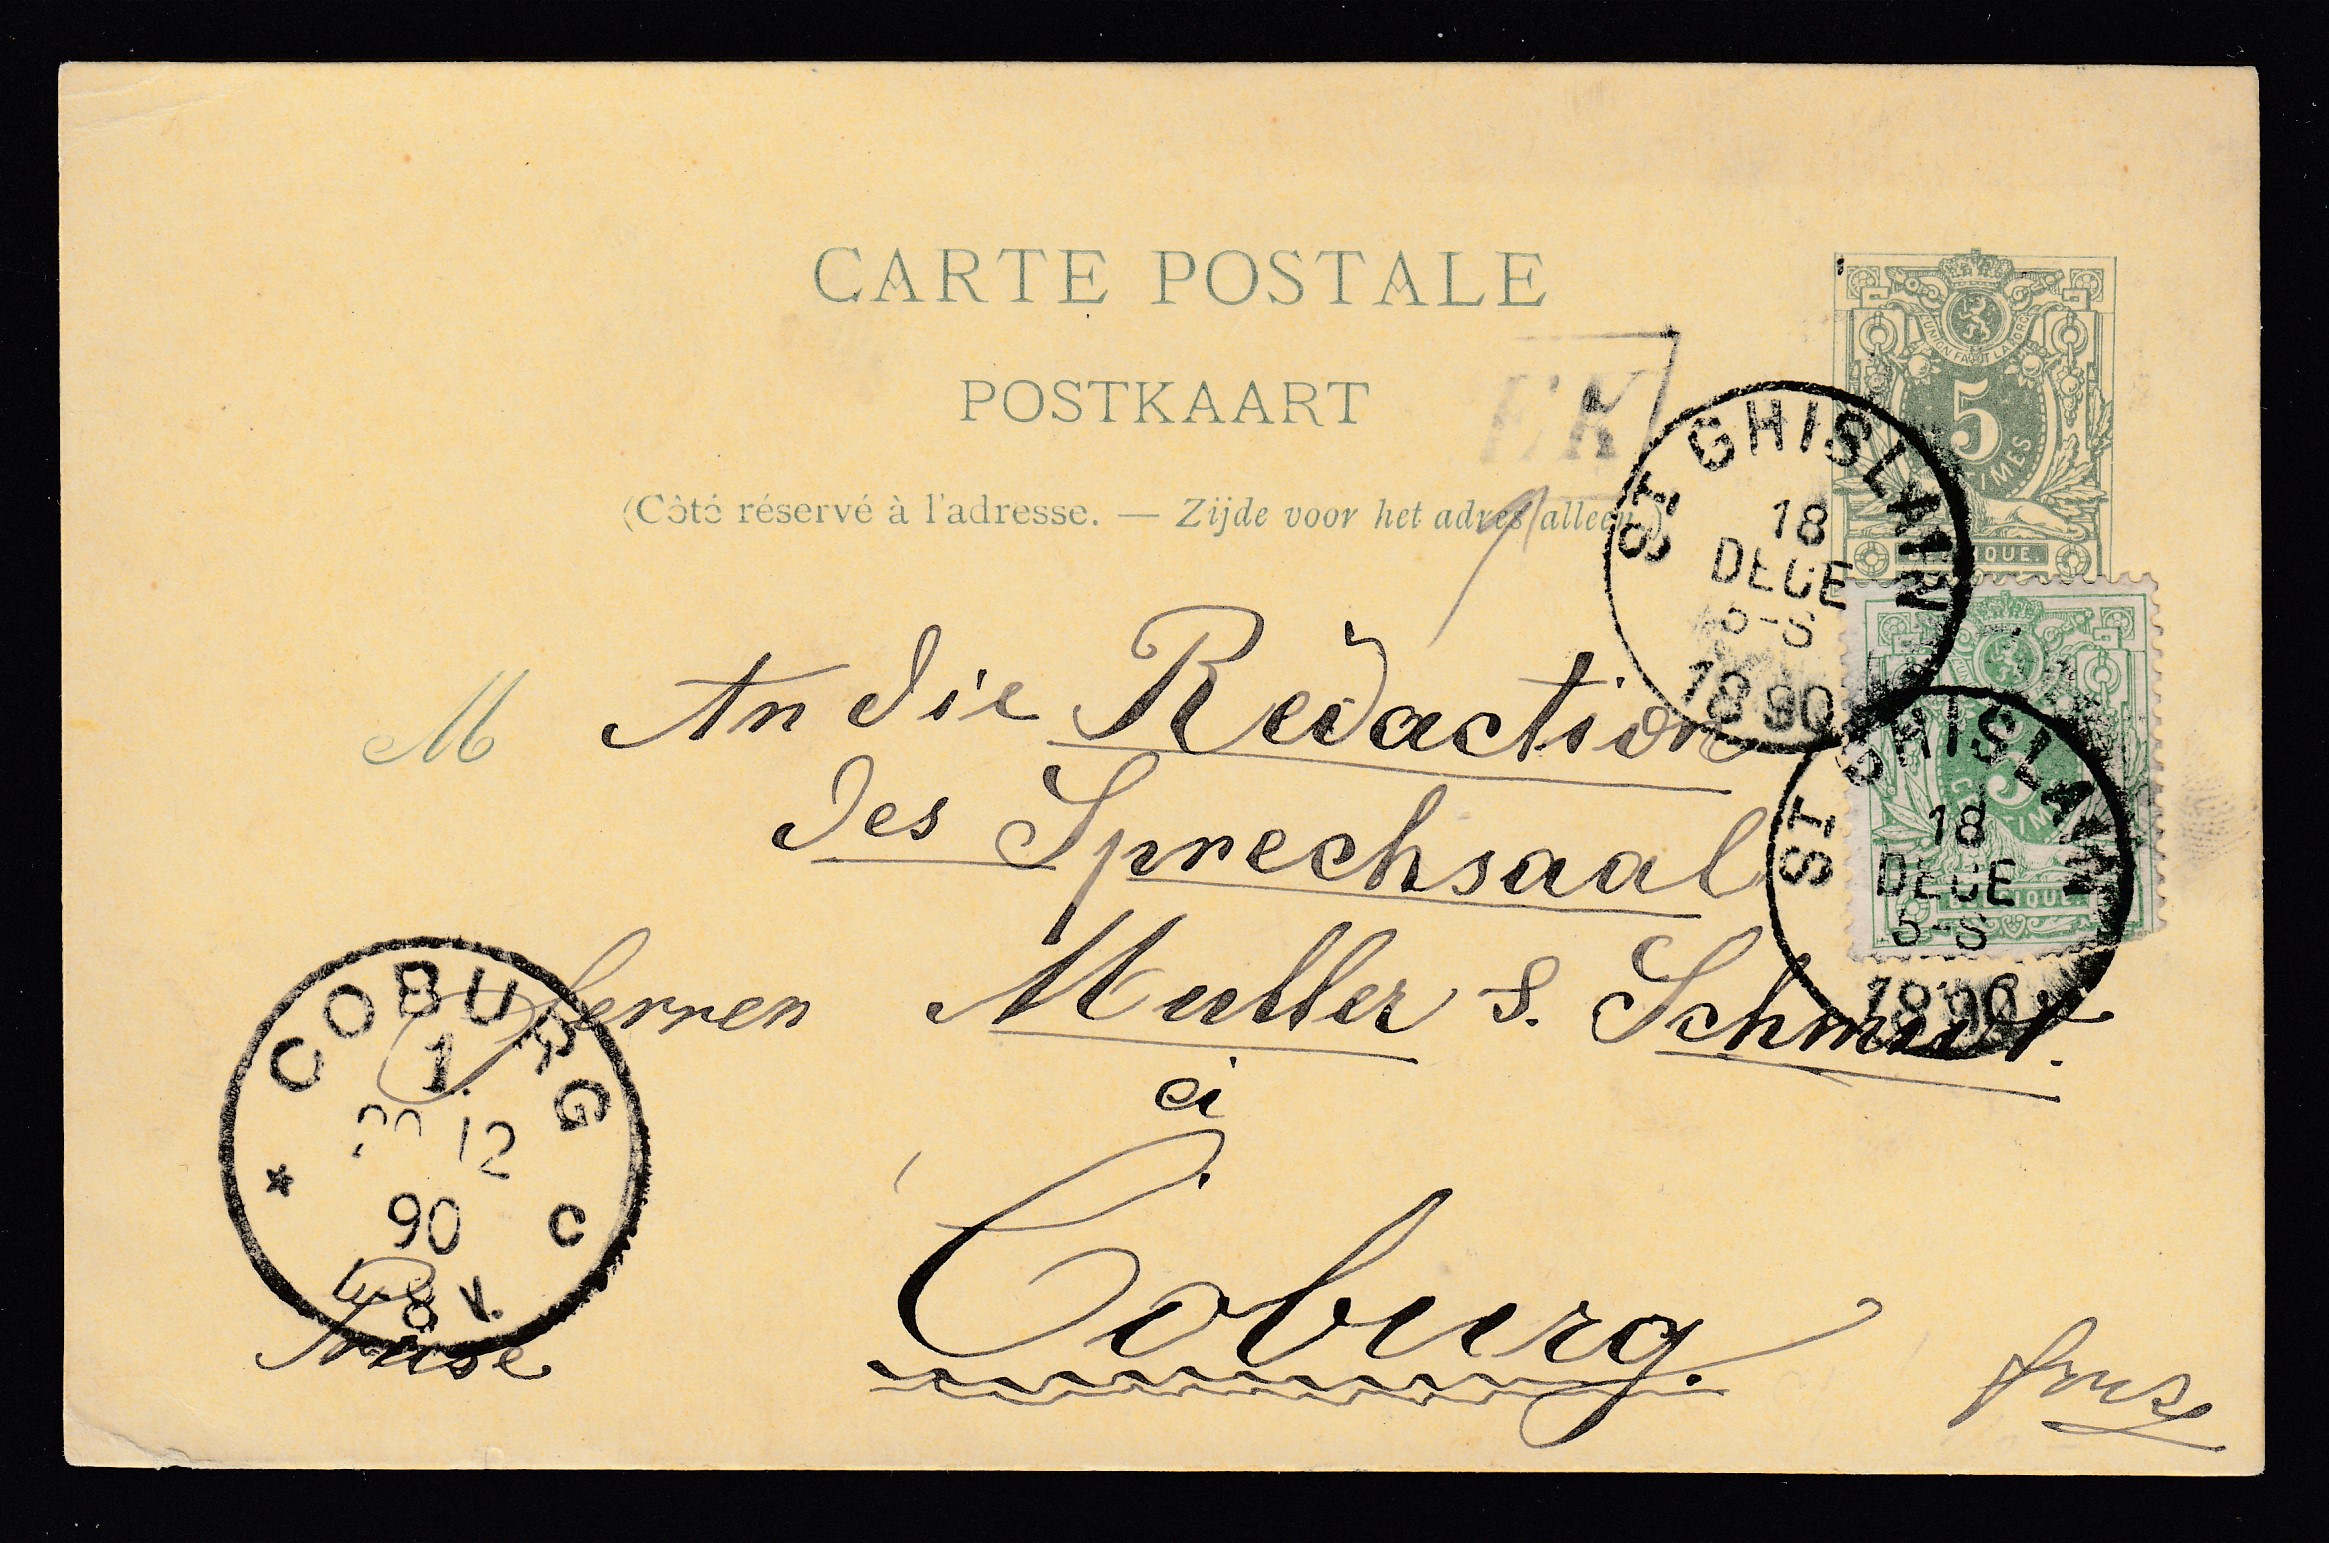 CARTE POSTALE
POSTKAART
(Côté réservé à l'adresse. — Zijde voor het adres alleen.)
L'UNION FAIT LA FORCE
5
ST GHISLAIN
18
DECE
5-S
1890
M An die Redaction
des Sprechsaal
Herren Muller & Schmidt.
à
Coburg.
5
ST GHISLAIN
18
DECE
5-S
1890
COBURG
1.
12
90
8 V.
C